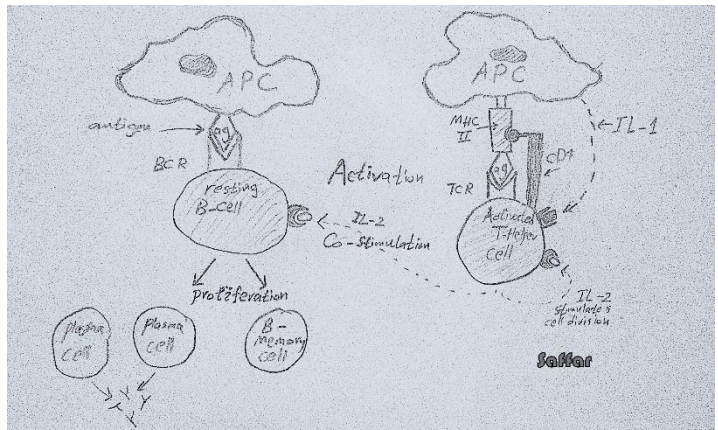 APC
antigen
ag
BCR
resting
B-cell
Activation
IL-2
Co-stimulation
proliferation
plasma
cell
plasma
cell
B-
memory
cell
APC
MHC
II
IL-1
CD4
ag
TCR
Activated
T-Helper
cell
IL-2
stimulates
cell division
Saffar